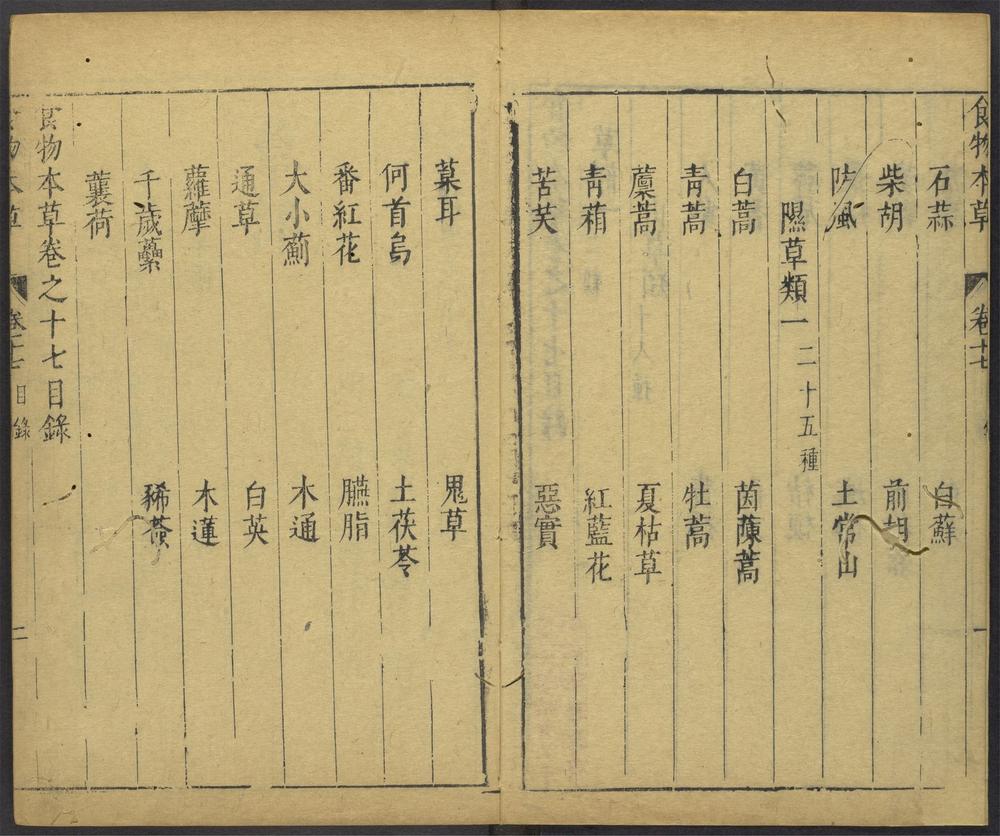 食物本草 卷十七 一
石蒜 白蘇
柴胡 前胡
防風 土常山
隰草類一 二十五種
白蒿 茵蔯蒿
青蒿 牡蒿
藳蒿 夏枯草
青葙 紅藍花
苦芙 惡實
葈耳 鬼草
何首烏 土茯苓
番紅花 臙脂
大小薊 木通
通草 白英
蘿藦 木蓮
千歲虆 豨薟
蘘荷
食物本草卷之十七目錄
食物本草 卷十七 目錄 二